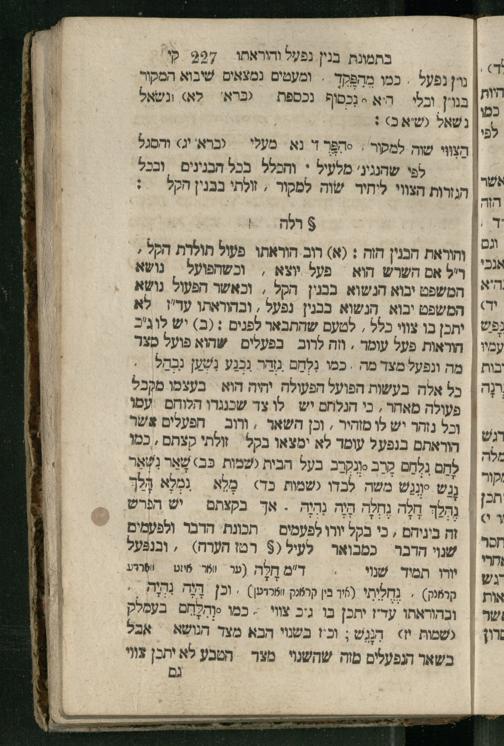 בתמונת בנין נפעל והוראתו 227 קי
נו״ן נפעל . כמו מֵהִפָּקֵד . ומעטים נמצאים שיבוא המקור
בנו״ן ובלי ה״א °נִכְסוֹף נכספת (ברא׳ לא) ונשאל
נשאל (ש״א כ) :
הַצִוּוּי שוה למקור . °הִפָּרֶד נא מעלי (ברא׳ יג) והסגל
לפי שהנגינ׳ מלעיל . והכלל בכל הבנינים ובכל
הגזרות הצווי ליחיד שוה למקור , זולתי בבנין הקל :
§ רלה
והוראת הבנין הזה : (א) רוב הוראתו פעול תולדת הקל ,
ר״ל אם השרש הוא פעל יוצא , וכשהפועל נושא
המשפט יבוא הנשוא בבנין הקל , וכאשר הפעול נושא
המשפט יבוא הנשוא בבנין נפעל , ובהוראתו עד״ז לא
יתכן בו צווי כלל , לטעם שהתבאר לפנים : (ב) יש לו ג״כ
הוראות פעל עומד , וזה לרוב בפעלים שהוא פועל מצד
מה ונפעל מצד מה . כמו נִלְחַם נִזְהַר נִכְנַע נִשְׁעַן נִבְהַל .
כל אלה בעשות הפועל הפעולה יהיה הוא בעצמו מקבל
פעולה מאחר , כי הנלחם יש לו צד שכנגדו הלוחם עמו
וכל נזהר יש לו מזהיר , וכן השאר , ורוב הפעלים אשר
הוראתם בנפעל עומד לא ימצאו בקל זולתי קצתם , כמו
לָחַם נִלְחַם קָרַב °וְנִקְרַב בעל הבית (שמות כב) שָׁאַר נִשְׁאַר
נָגַשׁ °וְנִגַּשׁ משה לבדו (שמות כד) מָלֵא נִמְלָא הָלַךְ
נֶהְלַךְ חָלָה נֶחְלָה הָיָה נִהְיָה . אך בקצתם יש הפרש
זה ביניהם , כי בקל יורו לפעמים תכונת הדבר ולפעמים
שנוי הדבר כמבואר לעיל (§ רטז הערה) , ובנפעל
יורו תמיד שנוי . ד״מ חָלָה (ער וואר אונד וואורדע
קראנק) . נֶחֱלֵיתִי (איך בין קראנק ווארדען) . וכן הָיָה נִהְיָה .
ובהוראתו עד״ז יתכן בו ג״כ צווי . כמו °וְהִלָּחֵם בעמלק
(שמות יז) הִנָּגֵשׁ ; וכ״ז בשנוי הבא מצד הנושא אבל
בשאר הנפעלים מזה שהשנוי מצד הטבע לא יתכן צווי
גם